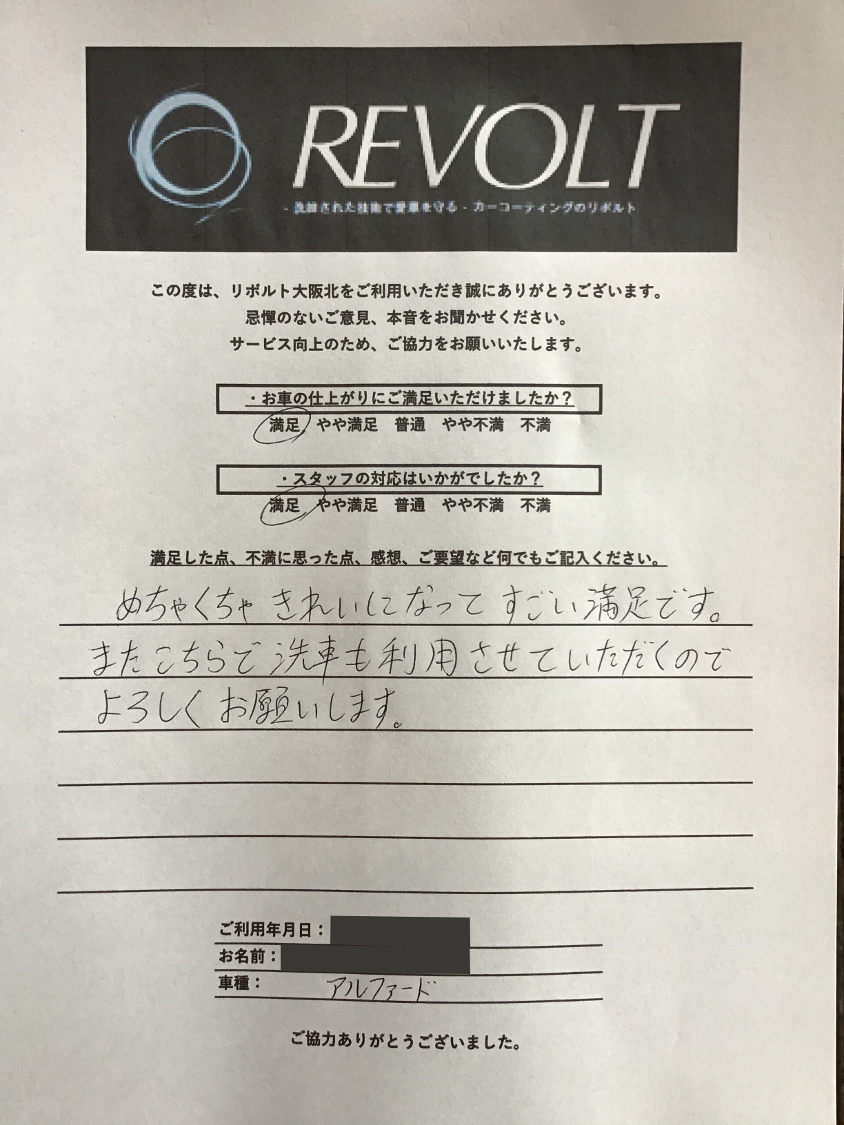 REVOLT
- 洗練された技術で愛車を守る - カーコーティングのリボルト
この度は、リボルト大阪北をご利用いただき誠にありがとうございます。
忌憚のないご意見、本音をお聞かせください。
サービス向上のため、ご協力をお願いいたします。
・お車の仕上がりにご満足いただけましたか？
満足 やや満足 普通 やや不満 不満
・スタッフの対応はいかがでしたか？
満足 やや満足 普通 やや不満 不満
満足した点、不満に思った点、感想、ご要望など何でもご記入ください。
めちゃくちゃきれいになってすごい満足です。
またこちらで洗車も利用させていただくので
よろしくお願いします。
ご利用年月日：
お名前：
車種： アルファード
ご協力ありがとうございました。